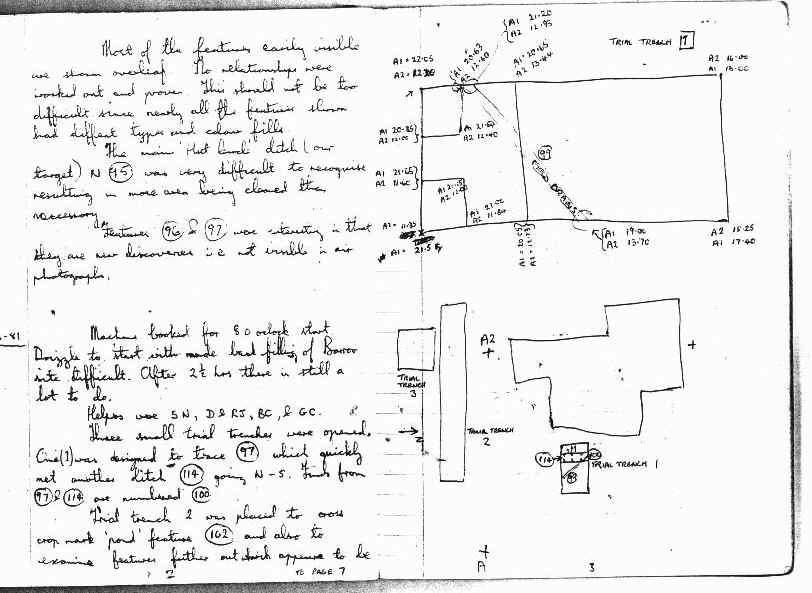 Most of the features easily visible
are shown overleaf. No relationships were
worked out and proven. This should not be too
difficult since nearly all the features shown
had different types and colour fills
The main 'Hut level' ditch (our
target) N 95 was very difficult to recognise
resulting in more area being cleared than
necessary
Features 96 & 97 were interesting in that
they are new discoveries i.e not visible in air
photographs.
-81
Machine booked for 8 0 oclock start
Drizzle to start with made back filling of Barrow
site difficult. After 2½ hrs there is still a
lot to do.
Helpers were SN, D & RJ, BC, & GC.
Three small trial trenches were opened.
One (1) was designed to trace 97 which quickly
met another ditch 114 going N-S. Finds from
97 & 114 are numbered 100
Trial trench 2 was placed to cross
crop mark 'pond' feature 102 and also to
examine features further out which appears to be
2
TO PAGE 7
TRIAL TRENCH 1
A1 21.20
A2 12.95
A1 = 22.05
A1 20.63
A2 16.00
A1 15.00
A1 20.85
A2 12.00
A2 12.40
A1 21.25
A2 11.60
A1 21.00
A2 11.80
99
FIELD DRAIN
A2 = 11.35
A1 = 21.5
A1 19.00
A2 13.70
A2 15.25
A1 17.40
TRIAL
TRENCH
3
A2
TRIAL TRENCH
2
114
TRIAL TRENCH 1
A
3